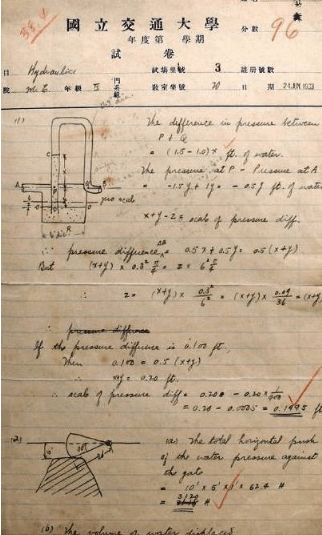 分數 96
國立交通大學
年度第 學期
試卷
日 Hydraulics 試場坐號 3 註冊號數
M.E. 年級 II 教室坐號 日期 24 JUN 1933
(1) The difference in pressure between
P & Q
= (1.5 - 1.0)x ft. of water.
The pressure at P - Pressure at A
= -1.5y + 1y = -0.5y ft. of water
x+y-z = scale of pressure diff.
∴ pressure difference = 0.5x + 0.5y = 0.5(x+y)
But (x+y) × 0.3² π/4 = z × 6² π/4
∴ z = (x+y) × 0.3²/6² = (x+y) × 0.09/36 = (x+y)
∴ pressure difference
If the pressure difference is 0.100 ft,
Then 0.100 = 0.5(x+y)
∴ x+y = 0.20 ft.
∴ scale of pressure diff = 0.200 - 0.20 × 1/400
= 0.20 - 0.0005 = 0.1995 ft
(2) (a) The total horizontal push
of the water pressure against
the gate
= 10' × 5' × 1' × 62.4 #
= 3120 #
(b) The volume of water displaced